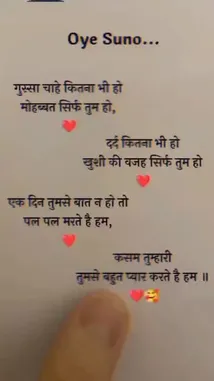 Oye Suno...
गुस्सा चाहे कितना भी हो
मोहब्बत सिर्फ तुम हो,
दर्द कितना भी हो
खुशी की वजह सिर्फ तुम हो
एक दिन तुमसे बात न हो तो
पल पल मरते है हम,
कसम तुम्हारी
तुमसे बहुत प्यार करते है हम ॥